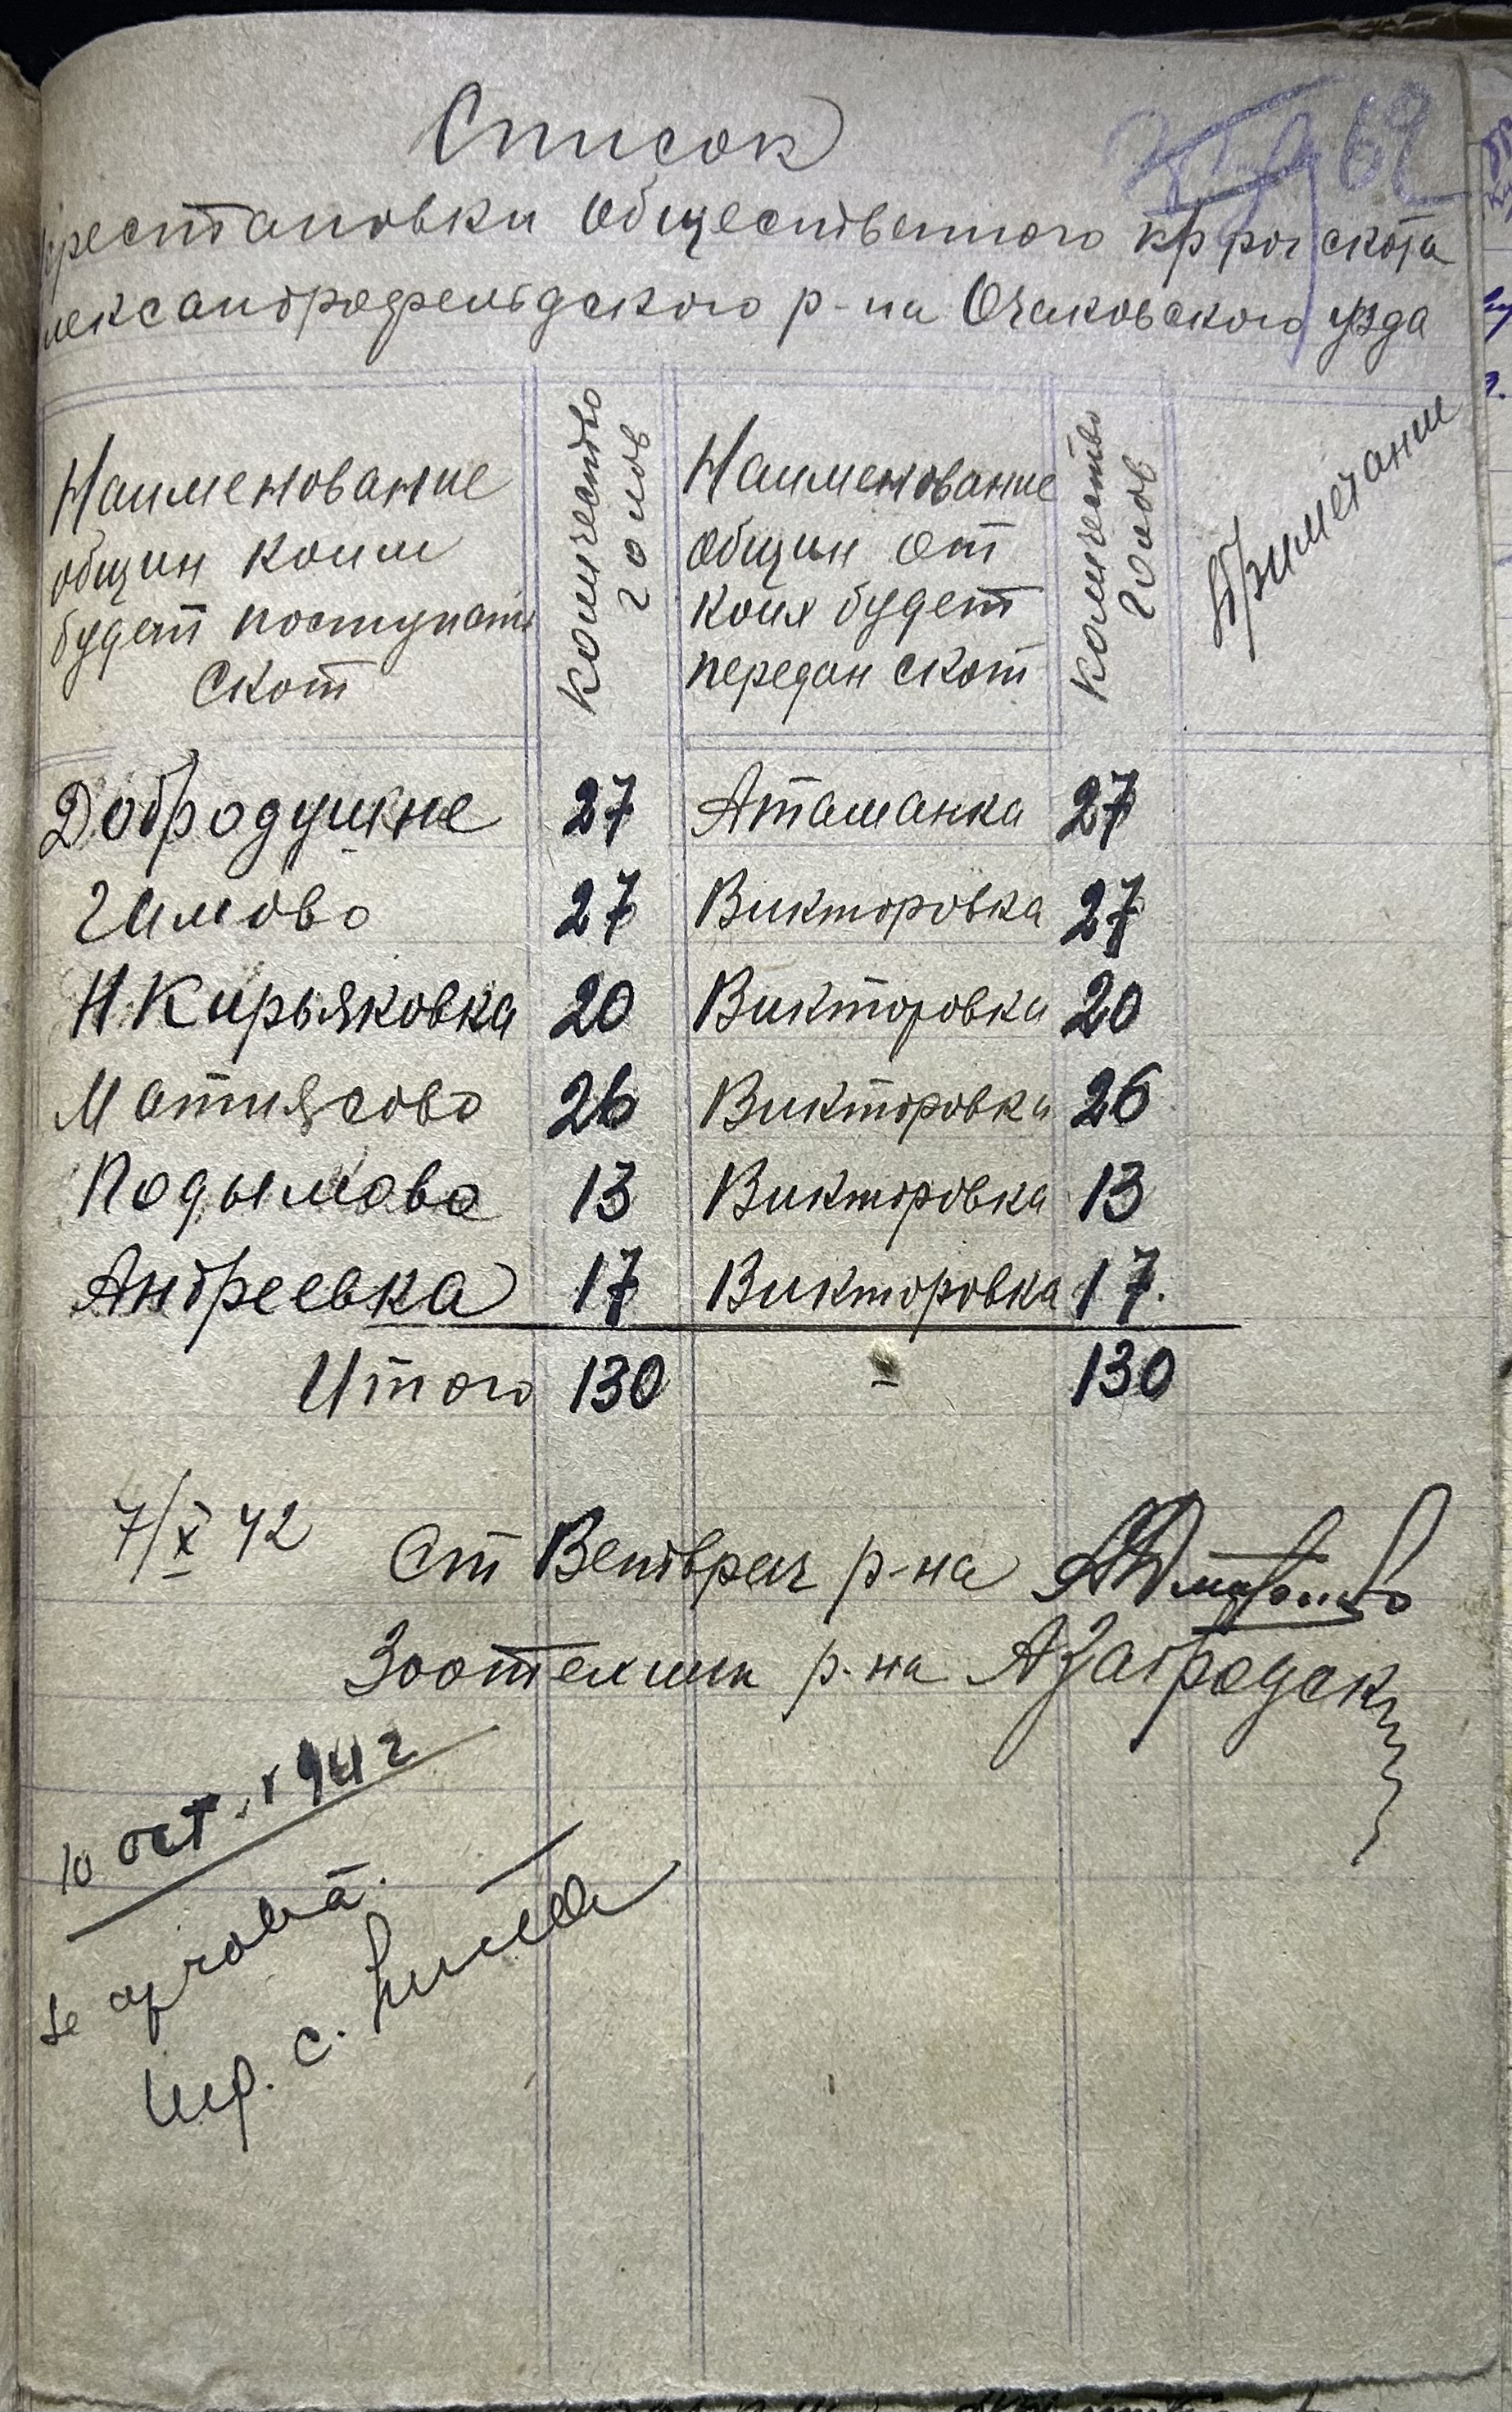 Список
69
рестановки общественного кр рог скота
лександрофельдского р-на Очаковского уезда
Наименование общин коим будет поступать скот | количество голов | Наименование общин от коих будет передан скот | количество голов | Примечание
Добродушне 27 Аташанка 27
Чимово 27 Викторовка 27
Н Кирьяковка 20 Викторовка 20
Матиясово 26 Викторовка 26
Подымово 13 Викторовка 13
Андреевка 17 Викторовка 17.
Итого 130 – 130
7/X 42 Ст Ветврач р-на
Зоотехник р-на АЗагродск
10 oct. 1942
se aprobă.